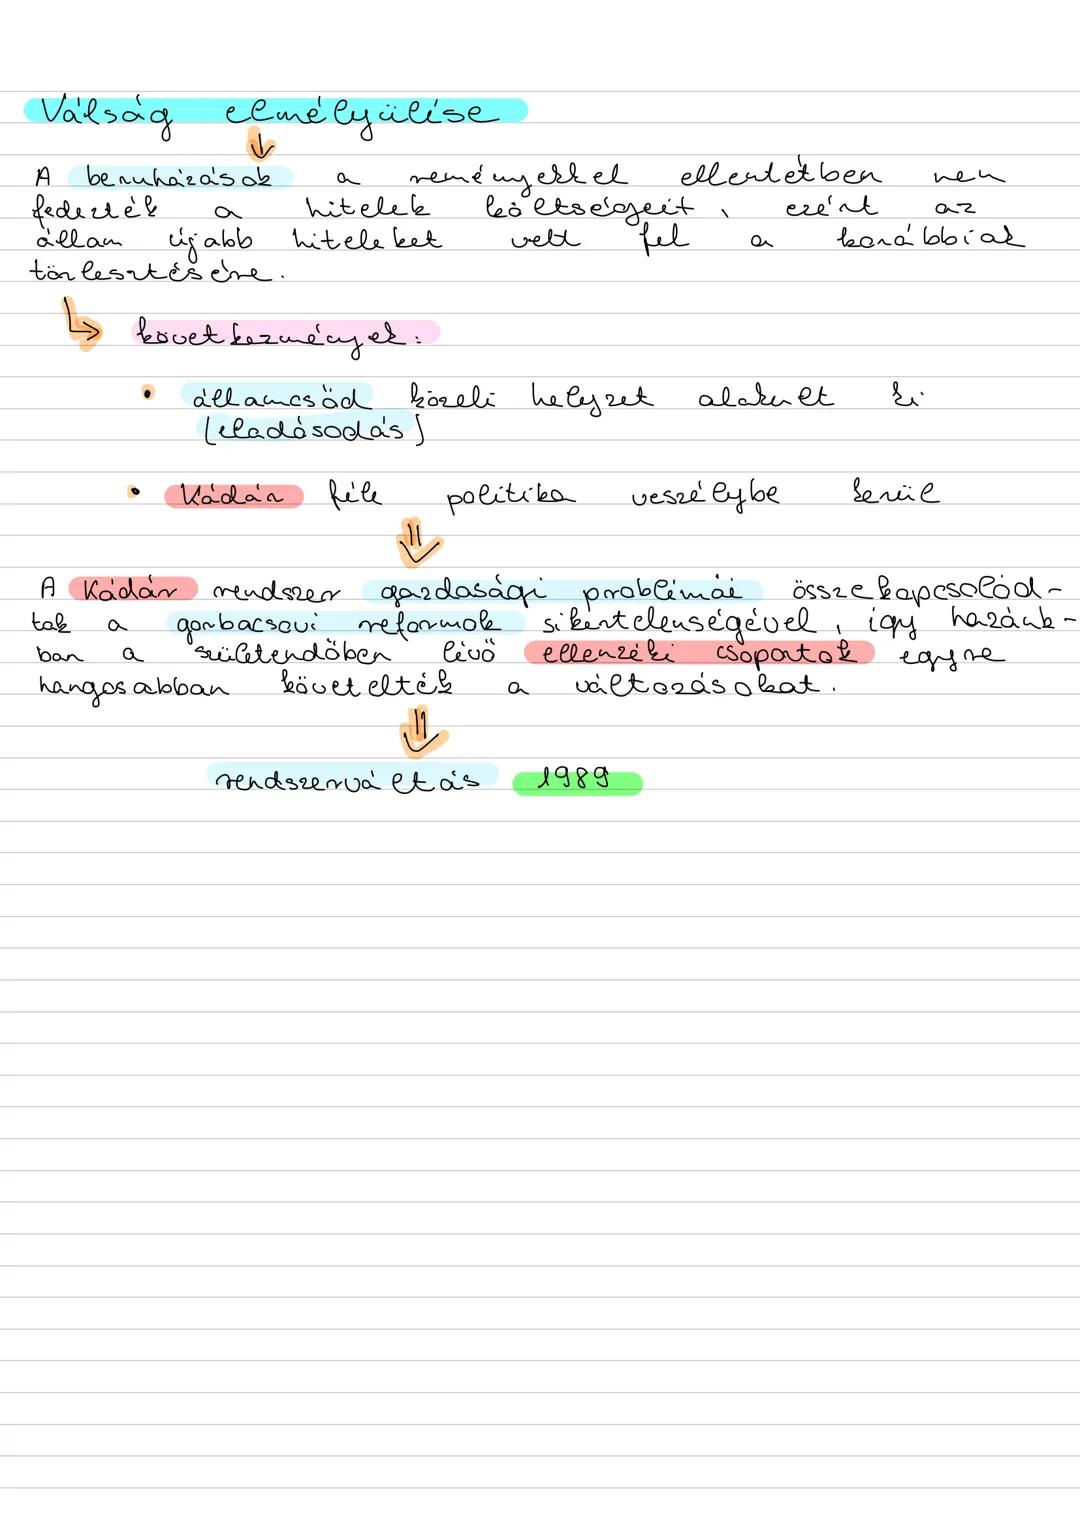 Válság elmélyülése
↓
A beruházások a reményekkel ellentétben nem
fedezték a hitelek költségeit, ezért az
állam újabb hiteleket vett fel a korábbiak
törlesztésére.
↳ következmények:
• államcsőd közeli helyzet alakult ki
(eladósodás)
• Kádár féle politika veszélybe kerül
⇓
A Kádár rendszer gazdasági problémái összekapcsolód-
tak a gorbacsovi reformok sikertelenségével, így hazánk-
ban a születendőben lévő ellenzéki csoportok egyre
hangosabban követelték a változásokat.
⇓
rendszerváltás 1989